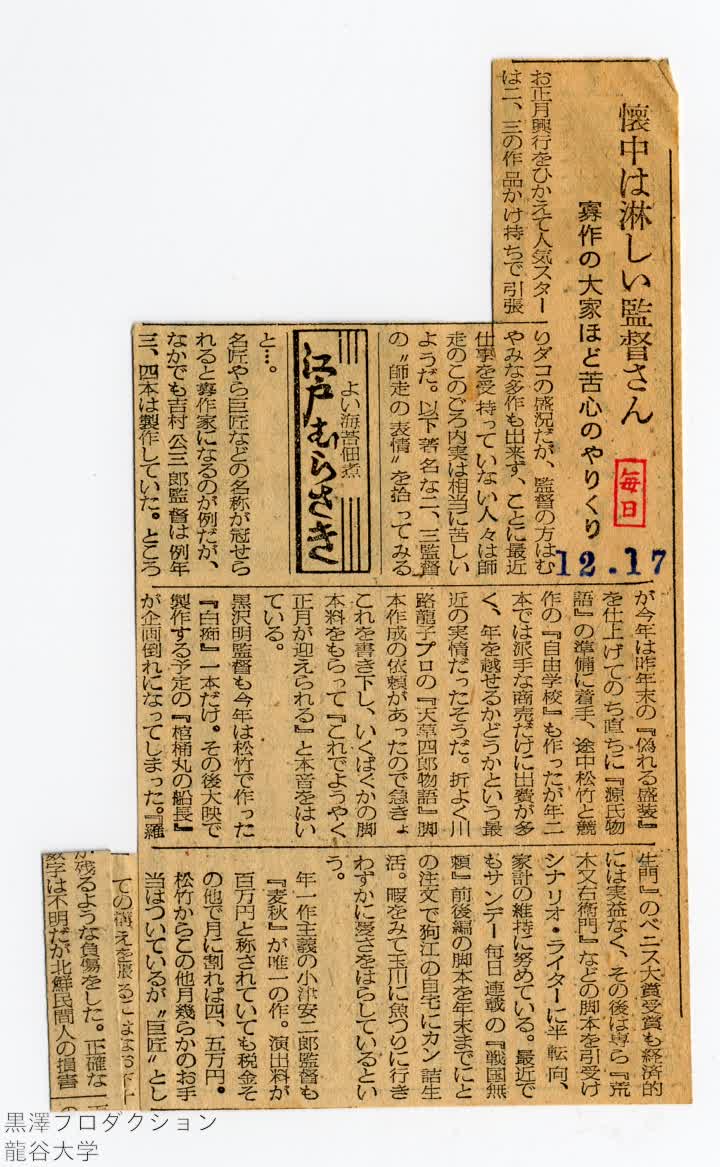 懐中は淋しい監督さん
寡作の大家ほど苦心のやりくり
毎日
12.17
お正月興行をひかえて人気スター
は二、三の作品かけ持ちで引張
りダコの盛況だが、監督の方はむ
やみな多作も出来ず、ことに最近
仕事を受持っていない人々は師
走のこのごろ内実は相当に苦しい
ようだ。以下著名な二、三監督
の〝師走の表情〟を拾ってみる
と…。
よい海苔佃煮
江戸むらさき
名匠やら巨匠などの名称が冠せら
れると寡作家になるのが例だが、
なかでも吉村公三郎監督は例年
三、四本は製作していた。ところ
が今年は昨年末の『偽れる盛装』
を仕上げてのち直ちに『源氏物
語』の準備に着手、途中松竹と競
作の『自由学校』も作ったが年二
本では派手な商売だけに出費が多
く、年を越せるかどうかという最
近の実情だったそうだ。折よく川
路龍子プロの『天草四郎物語』脚
本作成の依頼があったので急きょ
これを書き下し、いくばくかの脚
本料をもらって『これでようやく
正月が迎えられる』と本音をはい
ている。
黒沢明監督も今年は松竹で作った
『白痴』一本だけ。その後大映で
製作する予定の『棺桶丸の船長』
が企画倒れになってしまった。『羅
生門』のベニス大賞受賞も経済的
には実益なく、その後は専ら『荒
木又右衛門』などの脚本を引受け
シナリオ・ライターに半転向、
家計の維持に努めている。最近で
もサンデー毎日連載の『戦国無
頼』前後編の脚本を年末までにと
の注文で狛江の自宅にカン詰生
活。暇をみて玉川に魚つりに行き
わずかに憂さをはらしているとい
う。
年一作主義の小津安二郎監督も
『麦秋』が唯一の作。演出料が
百万円と称されていても税金そ
の他で月に割れば四、五万円。
松竹からこの他月幾らかのお手
当はついているが〝巨匠〟とし
ての構えを張るには
が残るような負傷をした。正確な
数字は不明だが北鮮民間人の損害
黒澤プロダクション
龍谷大学